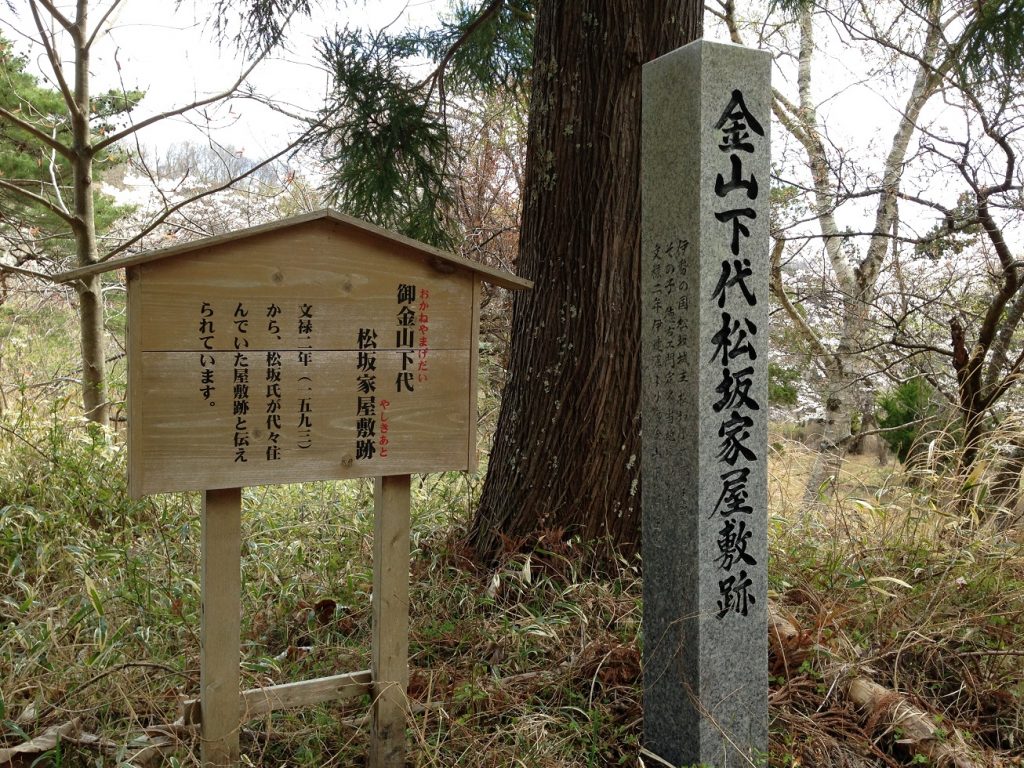 金山下代松坂家屋敷跡
おかねやまげだい
御金山下代
松坂家屋敷跡
やしきあと
文禄二年（一五九三）
から、松坂氏が代々住
んでいた屋敷跡と伝え
られています。
伊勢の国松坂城主
その子
文禄二年伊